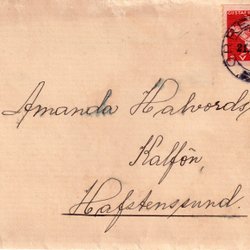 GUSTAF
Amanda Halvords
Kalfön
Hafstenssund.